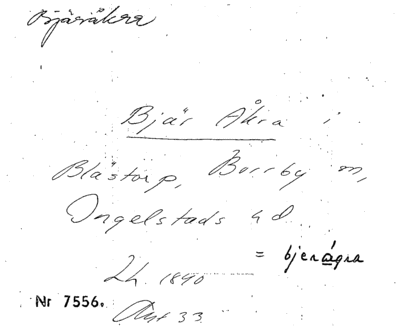 Bjäråkra
Bjär Åkra i
Blästorp, Borrby sn,
Ingelstads hd
= bjerågra
Lh. 1890
Nr 7556.
33